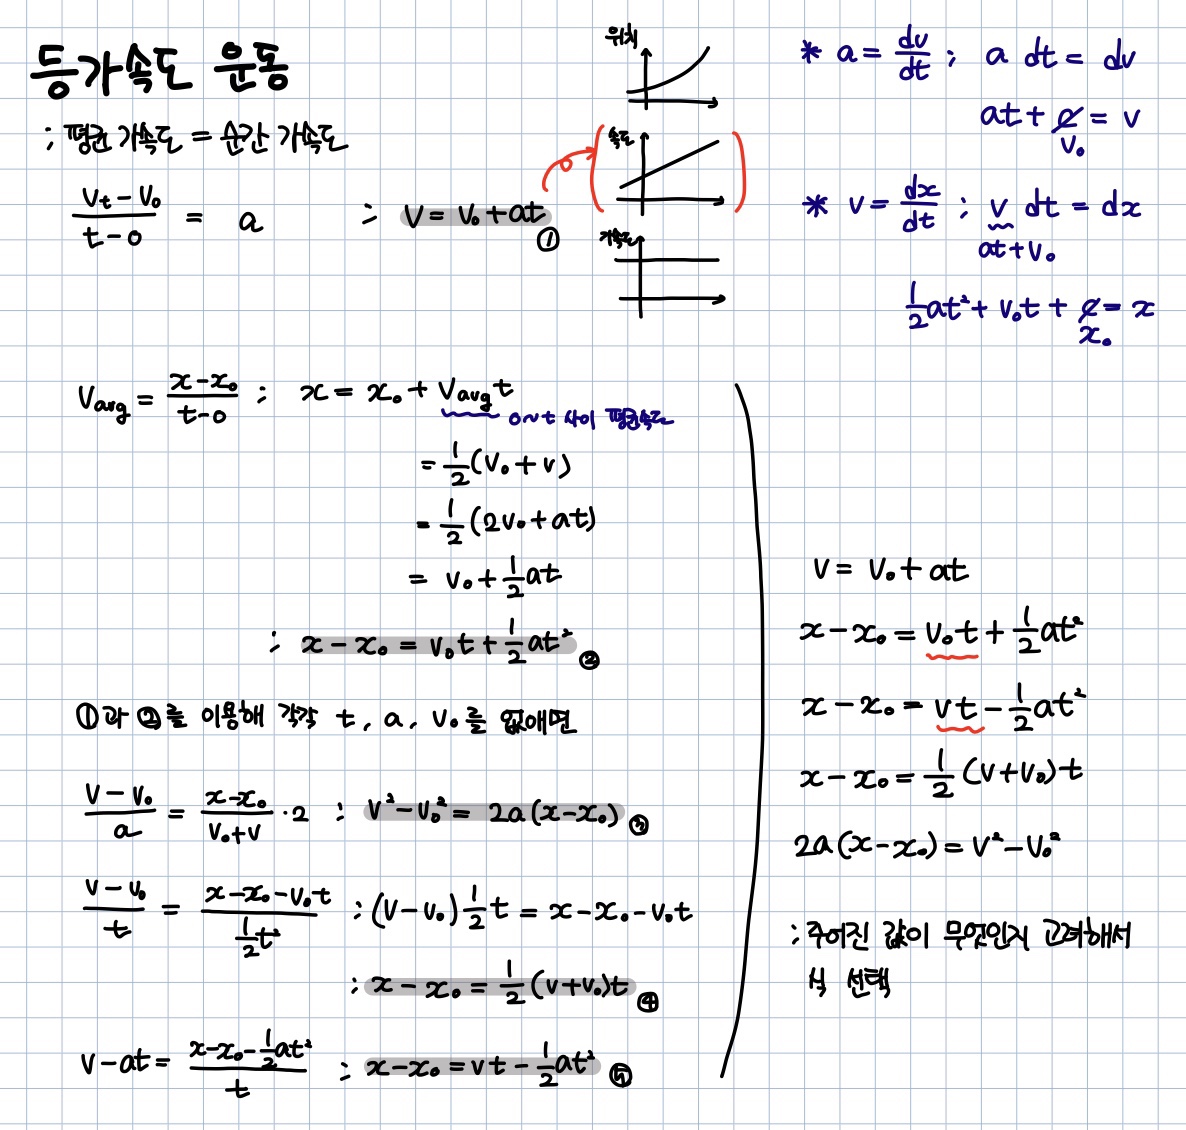 등가속도 운동
; 평균 가속도 = 순간 가속도
(Vt - V₀)/(t - 0) = a ; V = V₀ + at ①
위치
속도
가속도
* a = dv/dt ; a dt = dv
at + C = v
V₀
* v = dx/dt ; v dt = dx
at + V₀
½at² + V₀t + C = x
x₀
Varg = (x - x₀)/(t - 0) ; x = x₀ + Vavg t
0~t 사이 평균속도
= ½(V₀ + v)
= ½(2V₀ + at)
= V₀ + ½at
; x - x₀ = V₀t + ½at² ②
①과 ②를 이용해 각각 t, a, V₀를 없애면
(V - V₀)/a = (x - x₀)/(V₀ + V) · 2 ; V² - V₀² = 2a(x - x₀) ③
(V - V₀)/t = (x - x₀ - V₀t)/(½t²) ; (V - V₀)½t = x - x₀ - V₀t
; x - x₀ = ½(V + V₀)t ④
V - at = (x - x₀ - ½at²)/t ; x - x₀ = vt - ½at² ⑤
V = V₀ + at
x - x₀ = V₀t + ½at²
x - x₀ = vt - ½at²
x - x₀ = ½(V + V₀)t
2a(x - x₀) = V² - V₀²
; 주어진 값이 무엇인지 고려해서
식 선택